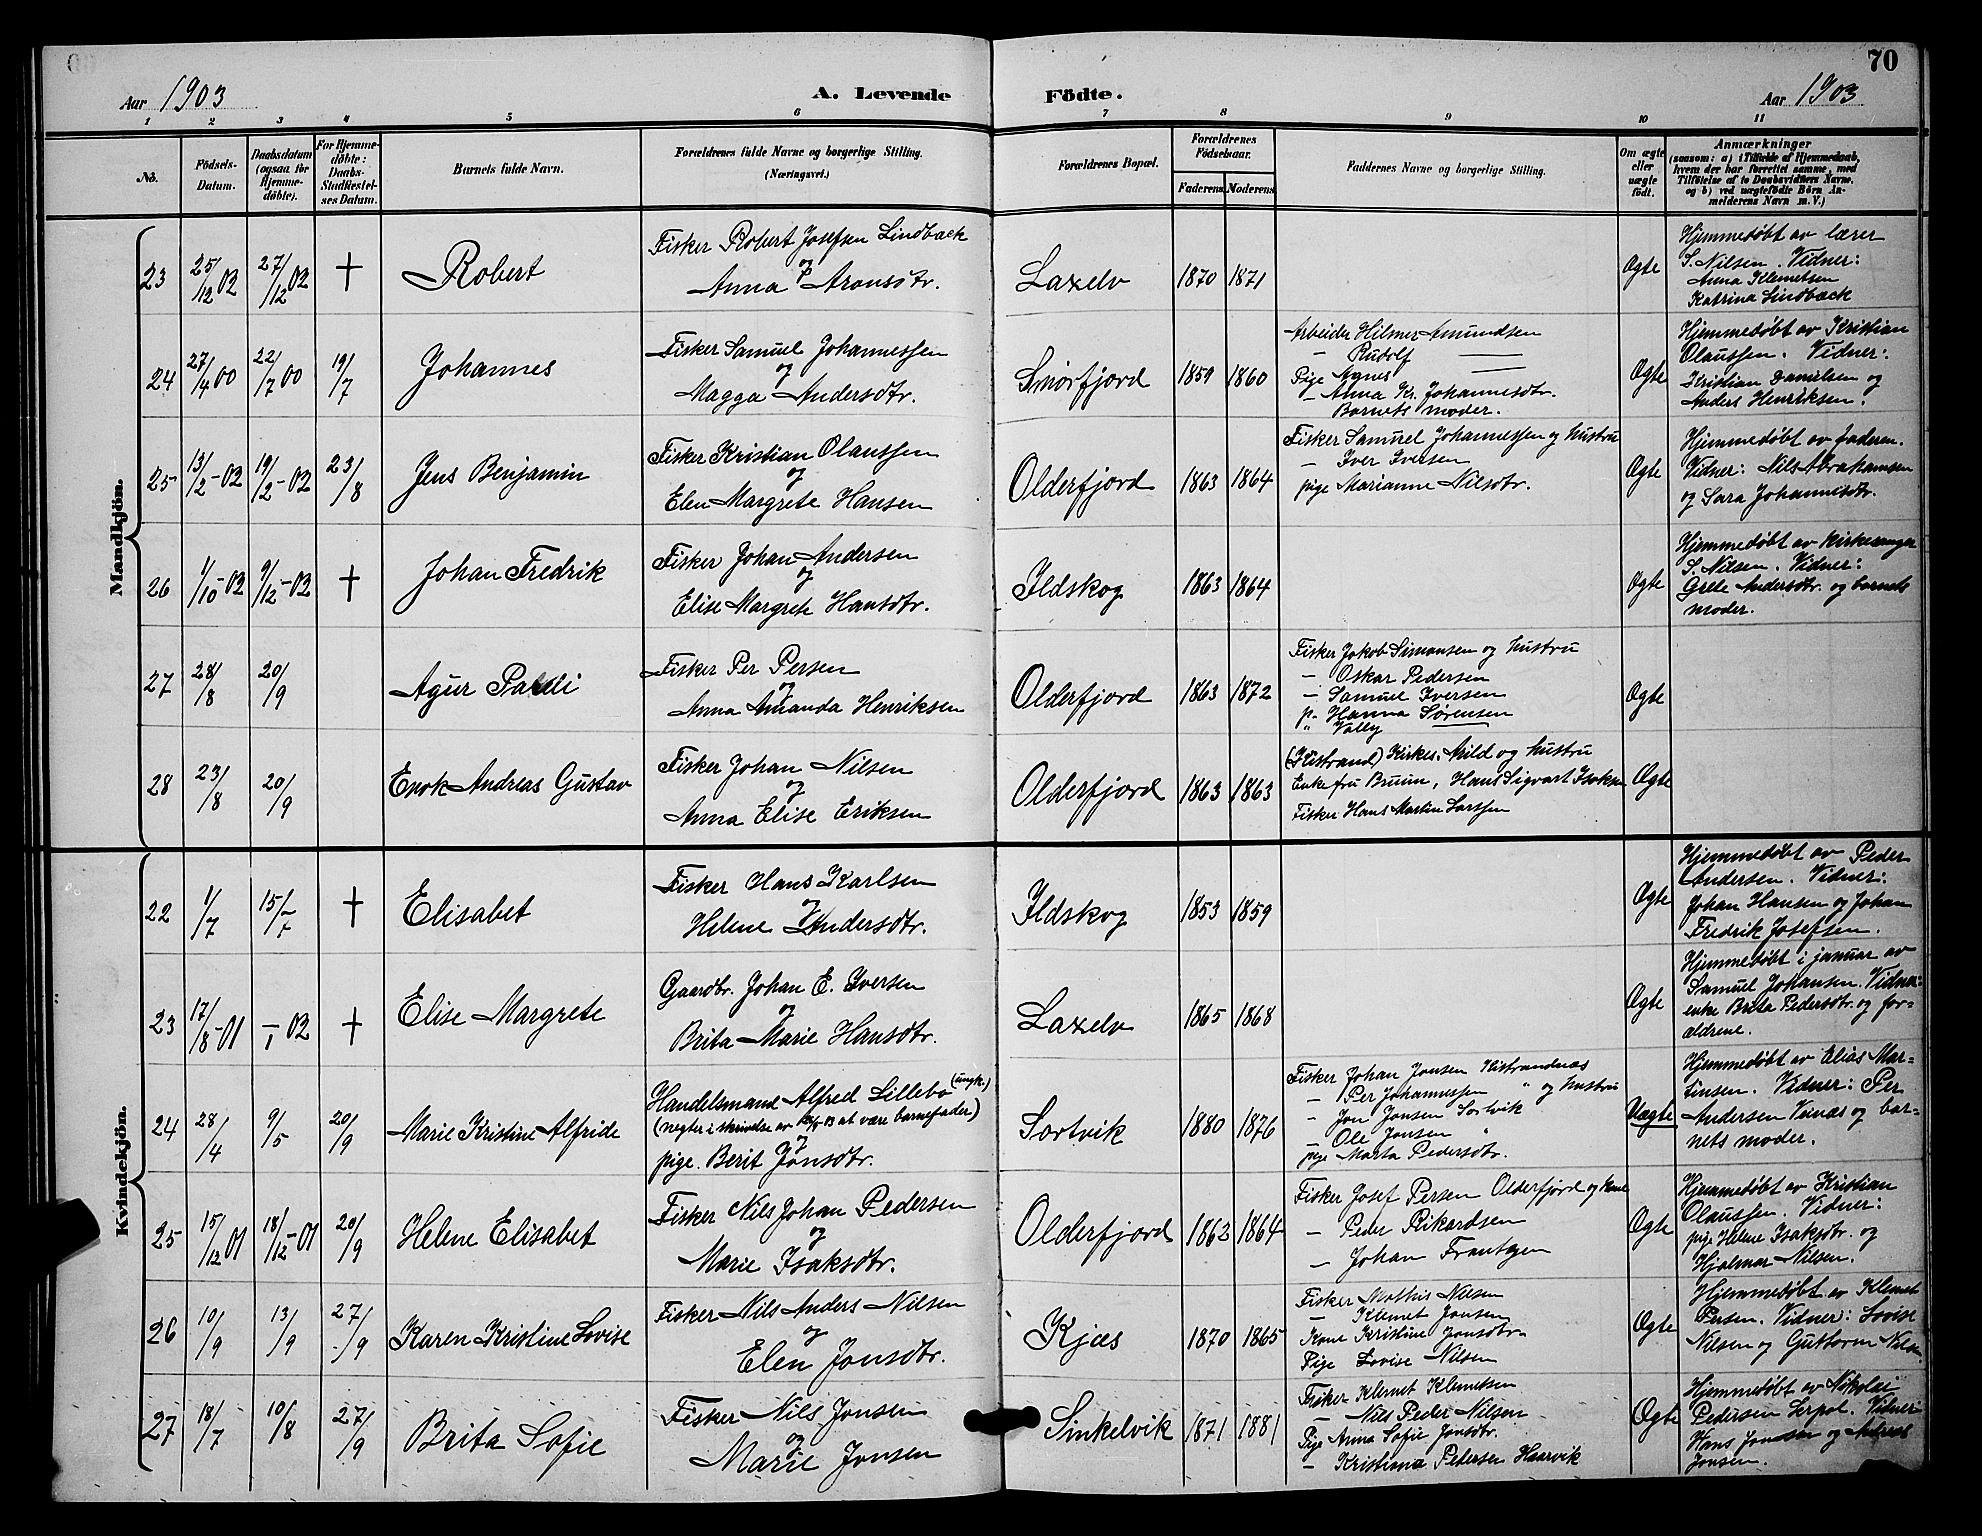 70
Aar 1903
A. Levende
Födte.
Aar 1903
1 2 3 4 5 6 7 8 9 10 11
No.
Födsels-Datum.
Daabsdatum (ogsaa for Hjemme-döbte).
For Hjemme-döbte: Daabs-Stadfæstel-ses Datum.
Barnets fulde Navn.
Forældrenes fulde Navne og borgerlige Stilling.
(Næringsvei.)
Forældrenes Bopæl.
Forældrenes Födselsaar.
Faderens. Moderens.
Faddernes Navne og borgerlige Stilling.
Om ægte eller uægte födt.
Anmærkninger
(saasom: a) i Tilfælde af Hjemmedaab,
hvem der har forrettet samme, med
Tilföielse af to Daabsvidners Navne.
og b) ved uægtefödte Börn An-
melderens Navn m. V.)
Mandkjön.
23 25/12 02 27/12 02 † Robert
Fisker Robert Josefsen Lindback
og
Anna Aronsdtr.
Laxelv 1870 1871
Ægte
Hjemmedøbt av lærer
S. Nilsen. Vidner:
Anna Klemetsen
Katrina Lindbæck
24 27/4 00 22/7 00 19/7 Johannes
Fisker Samuel Johannessen
og
Magga Andersdtr.
Smørfjord 1859 1860
Arbeider Hilmer Amundsen
— Rudolf —
Pige Agnes —
— Anna Kr. Johannesdtr.
Barnets moder.
Ægte
Hjemmedøbt av Kristian
Olaussen. Vidner:
Kristian Danielsen og
Anders Henriksen.
25 13/2-02 19/2-02 23/8 Jens Benjamin
Fisker Kristian Olaussen
og
Elen Margrete Hansen
Olderfjord 1863 1864
Fisker Samuel Johannessen og hustru
— Iver Iversen
pige Marianne Nilsdtr.
Ægte
Hjemmedøbt av faderen.
Vidner: Nils Abrahamsen
og Sara Johannesdtr.
26 1/10-02 9/12-02 † Johan Fredrik
Fisker Johan Andersen
og
Elise Margrete Hansdtr.
Ildskog 1863 1864
Ægte
Hjemmedøbt av kirkesanger
S. Nilsen. Vidner:
Grete Andersdtr. og barnets
moder.
27 28/8 20/9 Agur
Fisker Per Persen
og
Anna Amanda Henriksen
Olderfjord 1863 1872
Fisker Jakob Simonsen og hustru
— Oskar Pedersen
— Samuel Iversen
p. Hanna Sørensen
" Vally —
Ægte
28 23/8 20/9 Enok Andreas Gustav
Fisker Johan Nilsen
og
Anna Elise Eriksen
Olderfjord 1863 1863
(Kistrand) Kirkes. Mild og hustru
Enkefru Bruun, Hans Sigvart Isaksen
Fisker Hans Martin Larssen
Ægte
Kvindekjön.
22 1/7 15/7 † Elisabet
Fisker Hans Karlsen
og
Helene Andersdtr.
Ildskog 1853 1859
Ægte
Hjemmedøbt av Peder
Andersen. Vidner:
Johan Hansen og Johan
Fredrik Josefsen.
23 17/8-01 –/1 02 † Elise Margrete
Gaardbr. Johan E. Iversen
og
Brita Marie Hansdtr.
Laxelv 1865 1868
Ægte
Hjemmedøbt i januar av
Samuel Johansen. Vidner:
enke Brita Pedersdtr. og for-
ældrene.
24 28/4 9/5 20/9 Marie Kristine Alfride
Handelsmand Alfred Lillebo (ungk.)
(negter i skrivelse av at være barnefader)
og
pige. Berit Jonsdtr.
Sortvik 1880 1876
Fisker Johan Jonsen Kistrandnæs
— Per Johannessen " og hustru
— Jon Jonsen Sortvik
— Ole Jonsen "
pige Marta Pedersdtr.
Uægte
Hjemmedøbt av Elias Mar-
tinsen. Vidner: Per
Andersen Venæs og bar-
nets moder.
25 15/12 01 18/12-01 20/9 Helene Elisabet
Fisker Nils Johan Pedersen
og
Marie Isaksdtr.
Olderfjord 1862 1864
Fisker Josef Persen Olderfjord og kone
— Peder Rikardsen
— Johan Frantzen
Ægte
Hjemmedøbt av Kristian
Olaussen. Vidner:
pige Helene Isaksdtr. og
Hjalmar Nilsen.
26 10/9 13/9 27/9 Karen Kristine Lovise
Fisker Nils Anders Nilsen
og
Elen Jonsdtr.
Kjæs 1870 1865
Fisker Mathis Nilsen
— Klemet Jonsen
Kone Kristine Jonsdtr.
Pige Lovise Nilsen
Ægte
Hjemmedøbt av Klemet
Persen. Vidner: Lovise
Nilsen og Guttorm Nilsen
27 18/7 10/8 27/9 Brita Sofie
Fisker Nils Jonsen
og
Marie Jonsen
Sinkelvik 1871 1881
Fisker Klemet Klemetsen
— Nils Peder Nilsen
Pige Anna Sofie Jonsdtr.
— Kristiana Petersen Haarvik
Ægte
Hjemmedøbt av Nikolai
Pedersen Vidner:
Hans Jonsen og Andreas
Jonsen.